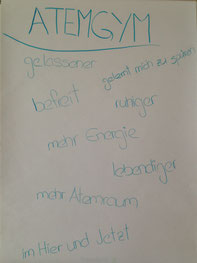 ATEMGYM
gelassener
gelernt mich zu spüren
befreit
ruhiger
mehr Energie
lebendiger
mehr Atemraum
im Hier und Jetzt